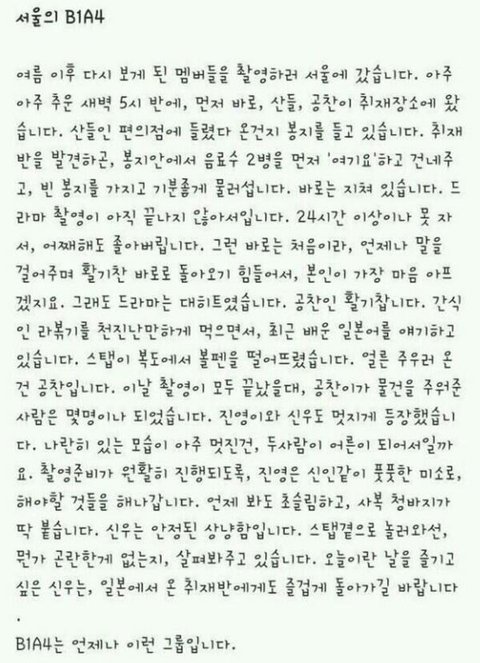 서울의 B1A4
여름 이후 다시 보게 된 멤버들을 촬영하러 서울에 갔습니다. 아주
아주 추운 새벽 5시 반에, 먼저 바로, 산들, 공찬이 취재장소에 왔
습니다. 산들인 편의점에 들렸다 온건지 봉지를 들고 있습니다. 취재
반을 발견하곤, 봉지안에서 음료수 2병을 먼저 '여기요'하고 건네주
고, 빈 봉지를 가지고 기분좋게 물러섭니다. 바로는 지쳐 있습니다. 드
라마 촬영이 아직 끝나지 않아서입니다. 24시간 이상이나 못 자
서, 어째해도 졸아버립니다. 그런 바로는 처음이라, 언제나 말을
걸어주며 활기찬 바로로 돌아오기 힘들어서, 본인이 가장 마음 아프
겠지요. 그래도 드라마는 대히트였습니다. 공찬인 활기찹니다. 간식
인 라볶기를 천진난만하게 먹으면서, 최근 배운 일본어를 얘기하고
있습니다. 스탭이 복도에서 볼펜을 떨어뜨렸습니다. 얼른 주우러 온
건 공찬입니다. 이날 촬영이 모두 끝났을대, 공찬이가 물건을 주워준
사람은 몇명이나 되었습니다. 진영이와 신우도 멋지게 등장했습니
다. 나란히 있는 모습이 아주 멋진건, 두사람이 어른이 되어서일까
요. 촬영준비가 원활히 진행되도록, 진영은 신인같이 풋풋한 미소로,
해야할 것들을 해나갑니다. 언제 봐도 초슬림하고, 사복 청바지가
딱 붙습니다. 신우는 안정된 상냥함입니다. 스탭곁으로 놀러와선,
뭔가 곤란한게 없는지, 살펴봐주고 있습니다. 오늘이란 날을 즐기고
싶은 신우는, 일본에서 온 취재반에게도 즐겁게 돌아가길 바랍니다
.
B1A4는 언제나 이런 그룹입니다.